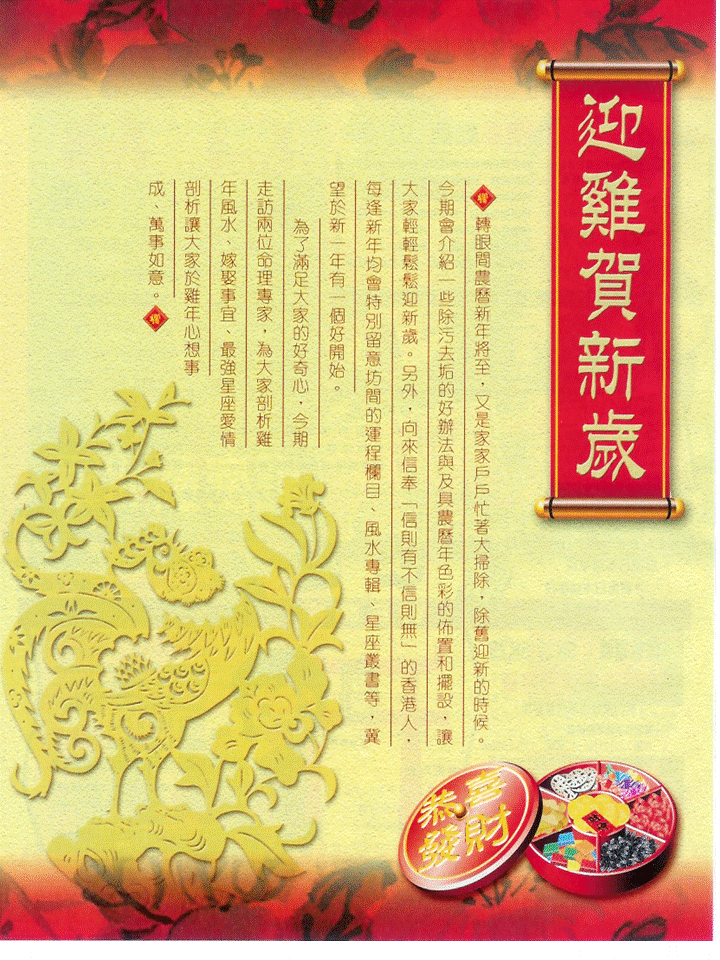 迎雞賀新歲
轉眼間農曆新年將至，又是家家戶戶忙著大掃除，除舊迎新的時候。
今期會介紹一些除污去垢的好辦法與及具農曆年色彩的佈置和擺設，讓
大家輕輕鬆鬆迎新歲。另外，向來信奉「信則有不信則無」的香港人，
每逢新年均會特別留意坊間的運程欄目、風水專輯、星座叢書等，冀
望於新一年有一個好開始。
為了滿足大家的好奇心，今期
走訪兩位命理專家，為大家剖析雞
年風水、嫁娶事宜、最強星座愛情
剖析讓大家於雞年心想事
成、萬事如意。
恭喜
發財